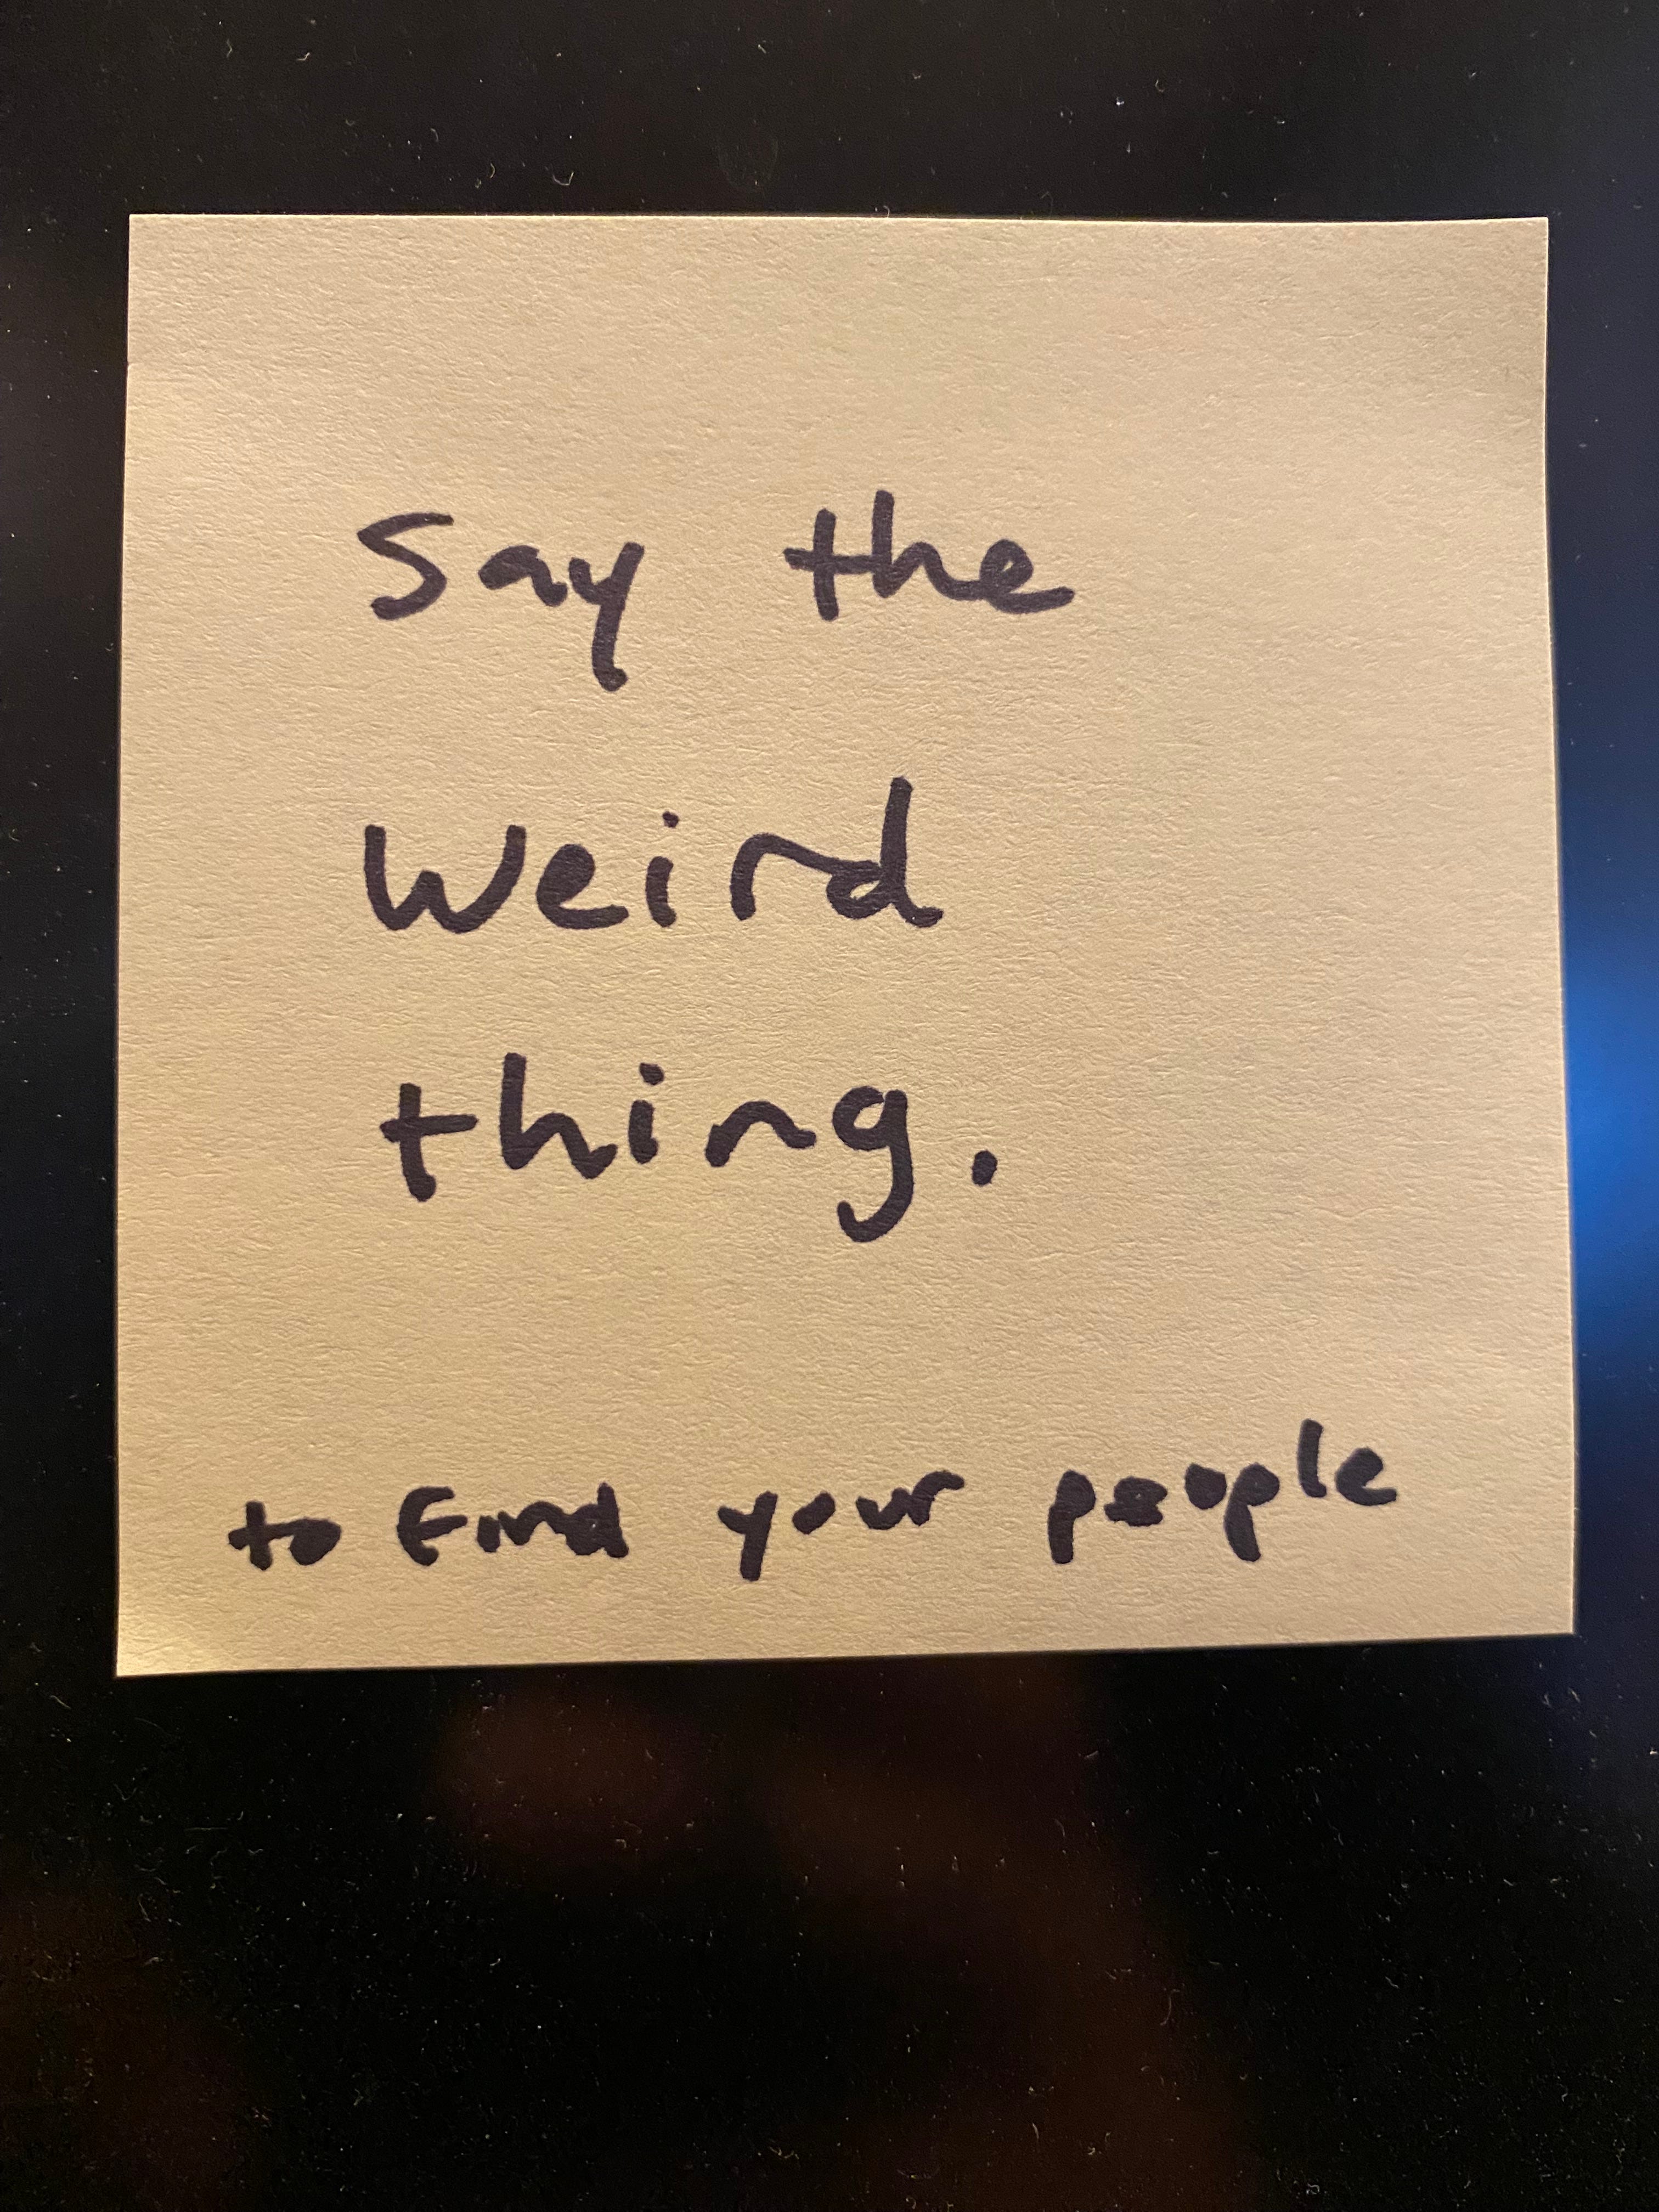 Say the
weird
thing.
to find your people